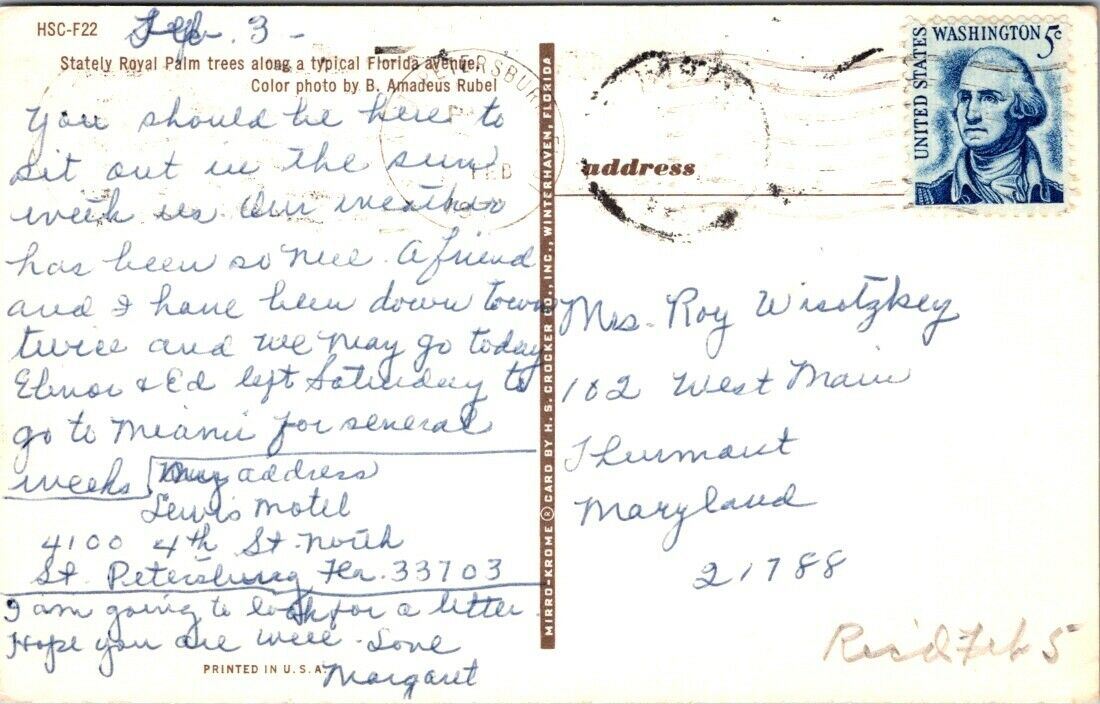 HSC-F22
Feb. 3 -
Stately Royal Palm trees along a typical Florida avenue.
Color photo by B. Amadeus Rubel
You should be here to
sit out in the sun
with us. Our weather
has been so nice. A friend
and I have been down town
twice and we may go today
Elinor & Ed left Saturday to
go to Miami for several
weeks
My address
Lewis Motel
4100 4th St. North
St. Petersburg Fla. 33703
I am going to look for a letter.
Hope you are well - Love
Margaret
PRINTED IN U.S.A.
MIRRO-KROME ® CARD BY H. S. CROCKER CO., INC., WINTERHAVEN, FLORIDA
PETERSBURG
FEB
address
UNITED STATES
WASHINGTON 5c
Mrs. Roy Wisotzkey
102 West Main
Thurmont
Maryland
21788
Rec'd Feb 5